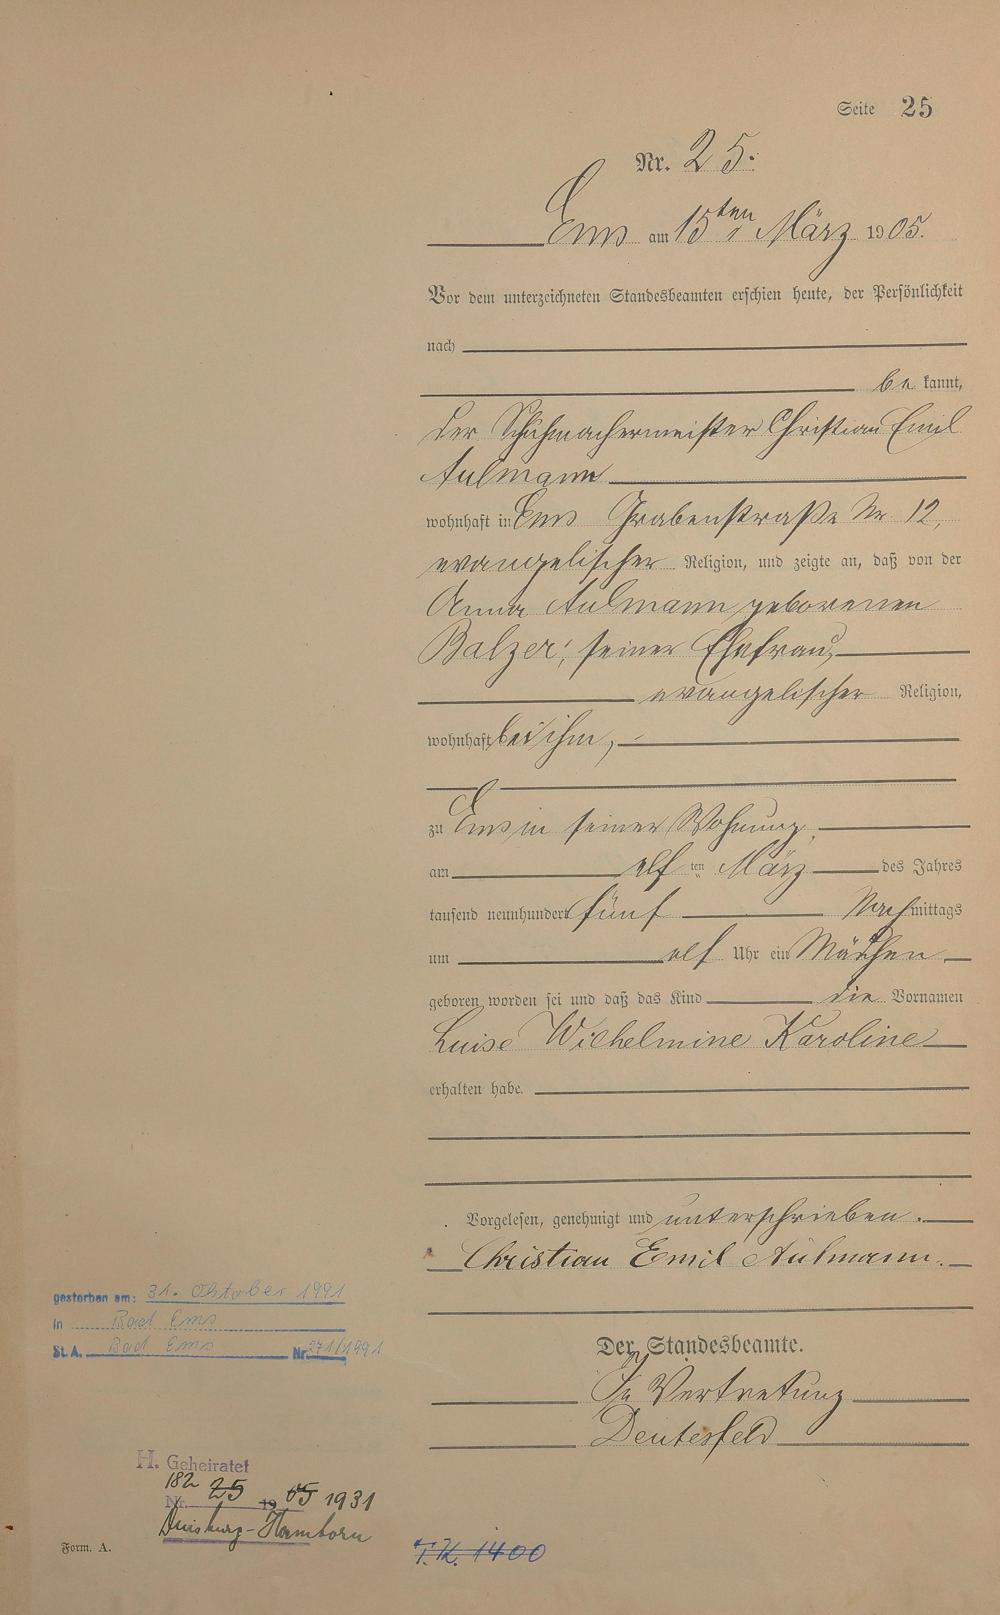 Seite 25
Nr. 25.
Ems am 15ten März 1905.
Vor dem unterzeichneten Standesbeamten erschien heute, der Persönlichkeit
nach
be kannt,
der Schuhmachermeister Christian Emil
Aulmann
wohnhaft in Ems Grabenstraße Nr. 12,
evangelischer Religion, und zeigte an, daß von der
Anna Aulmann geborenen
Balzer, seiner Ehefrau,
evangelischer Religion,
wohnhaft bei ihm,
zu Ems in seiner Wohnung,
am elf ten März des Jahres
tausend neunhundert fünf Nachmittags
um elf Uhr ein Mädchen
geboren worden sei und daß das Kind die Vornamen
Luise Wilhelmine Karoline
erhalten habe.
Vorgelesen, genehmigt und unterschrieben.
Christian Emil Aulmann.
Der Standesbeamte.
In Vertretung
Deutesfeld
gestorben am: 31. Oktober 1991
in Bad Ems
St. A. Bad Ems Nr. 271/1991
H. Geheiratet
182 25 05 1931
Nr. 19
Duisburg-Hamborn
Form. A.
T.K. 1400